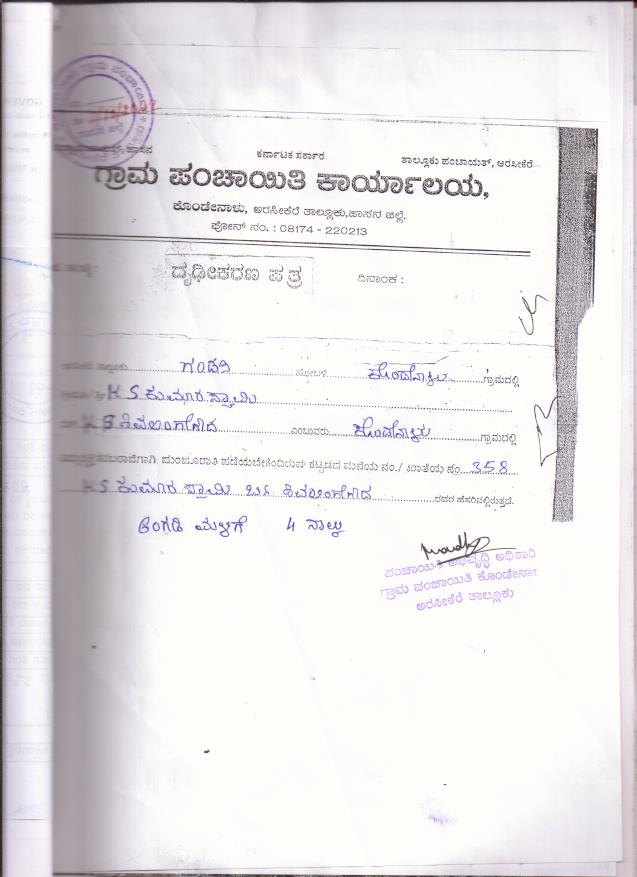 ಕರ್ನಾಟಕ ಸರ್ಕಾರ
ತಾಲ್ಲೂಕು ಪಂಚಾಯತ್, ಅರಸೀಕೆರೆ
ಗ್ರಾಮ ಪಂಚಾಯಿತಿ ಕಾರ್ಯಾಲಯ,
ಕೊಂಡೇನಾಳು, ಅರಸೀಕೆರೆ ತಾಲ್ಲೂಕು,ಹಾಸನ ಜಿಲ್ಲೆ.
ಫೋನ್ ನಂ. : 08174 - 220213
ದೃಢೀಕರಣ ಪತ್ರ
ದಿನಾಂಕ :
ಗಂಡಸಿ ಹೋಬಳಿ ಕೊಂಡೇನಾಳು ಗ್ರಾಮದಲ್ಲಿ
K S ಕುಮಾರಸ್ವಾಮಿ
K B ಶಿವಲಿಂಗೇಗೌಡ ಎಂಬುವರು ಕೊಂಡೇನಾಳು ಗ್ರಾಮದಲ್ಲಿ
ಮಂಜೂರಾತಿ ಪಡೆಯಬೇಕೆಂದಿರುವ ಕಟ್ಟಡದ ಮನೆಯ ನಂ./ ಖಾತೆಯ ನಂ 358
KS ಕುಮಾರಸ್ವಾಮಿ ಬಿನ್ ಶಿವಲಿಂಗೇಗೌಡ ರವರ ಹೆಸರಿನಲ್ಲಿರುತ್ತದೆ.
ಅಂಗಡಿ ಮಳಿಗೆ 4 ನಾಲ್ಕು
ಪಂಚಾಯಿತಿ ಅಭಿವೃದ್ಧಿ ಅಧಿಕಾರಿ
ಗ್ರಾಮ ಪಂಚಾಯಿತಿ ಕೊಂಡೇನಾಳು
ಅರಸೀಕೆರೆ ತಾಲ್ಲೂಕು